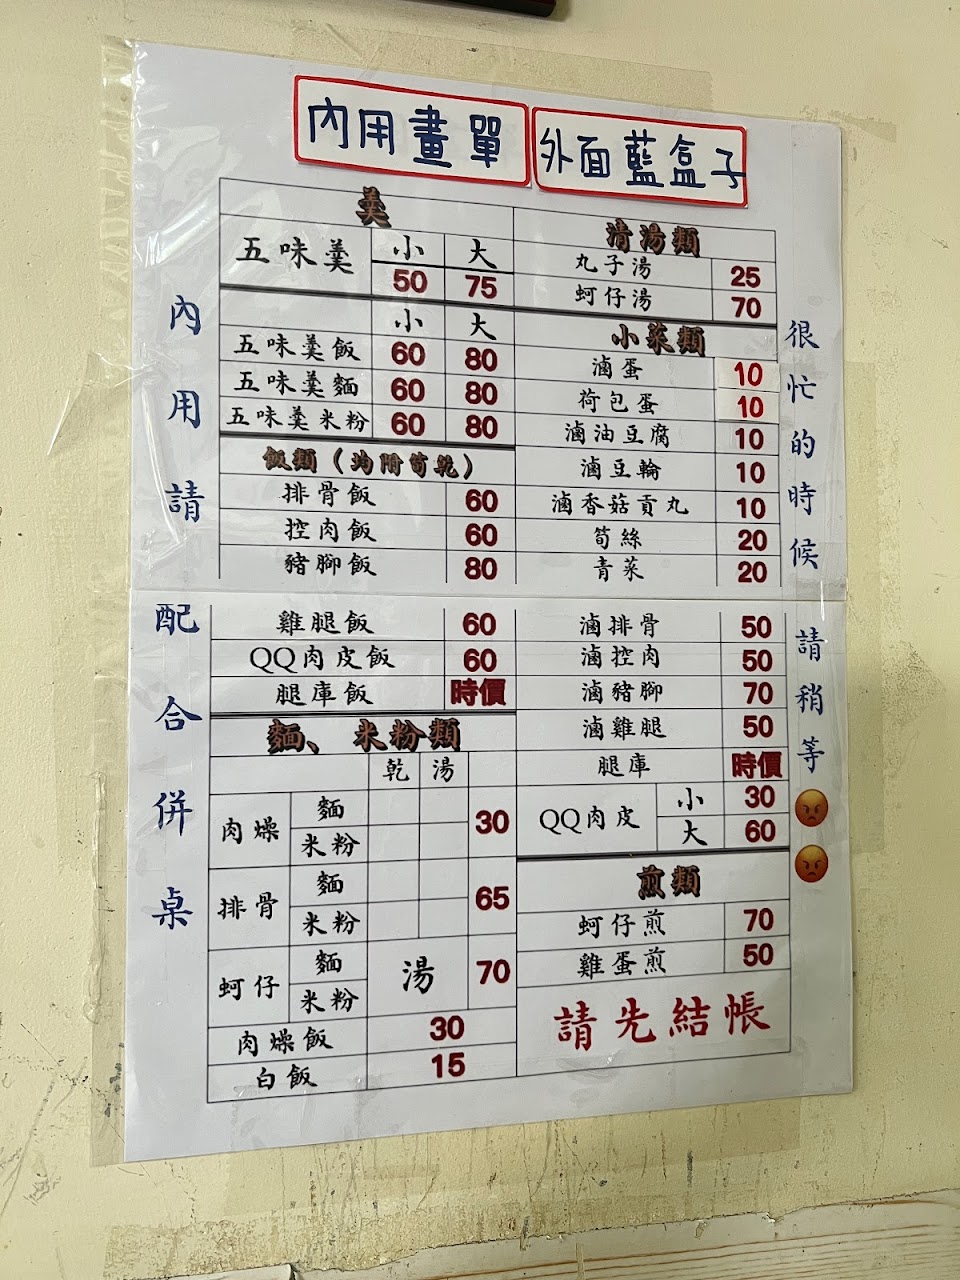 內用畫單 外面藍盒子
內用請配合併桌
羹
五味羹 小 大
50 75
小 大
五味羹飯 60 80
五味羹麵 60 80
五味羹米粉 60 80
飯類（均附筍乾）
排骨飯 60
控肉飯 60
豬腳飯 80
雞腿飯 60
QQ肉皮飯 60
腿庫飯 時價
麵、米粉類
乾 湯
肉燥 麵 米粉 30
排骨 麵 米粉 65
蚵仔 麵 米粉 湯 70
肉燥飯 30
白飯 15
清湯類
丸子湯 25
蚵仔湯 70
小菜類
滷蛋 10
荷包蛋 10
滷油豆腐 10
滷豆輪 10
滷香菇貢丸 10
筍絲 20
青菜 20
滷排骨 50
滷控肉 50
滷豬腳 70
滷雞腿 50
腿庫 時價
QQ肉皮 小 30
大 60
煎類
蚵仔煎 70
雞蛋煎 50
請先結帳
很忙的時候請稍等